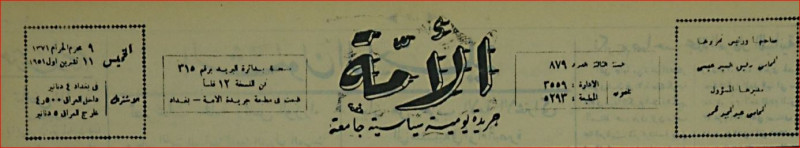 صاحبها ورئيس تحريرها
المحامي
مديرها المسؤول
المحامي عبد المجيد
٨٧٩
تلفون
الادارة : ٣٥٥٩
المطبعة : ٥٢٩٣
الأمة
جريدة يومية سياسية جامعة
بدائرة البريد برقم ٣١٥
ثمن النسخة ١٢ فلساً
طبعت في مطبعة جريدة الامة - بغداد
الخميس
٩ محرم الحرام ١٣٧١
١١ تشرين اول ١٩٥١
الاشتراك
في بغداد ٤ دنانير
داخل العراق ٤,٥٠٠
خارج العراق ٥ دنانير